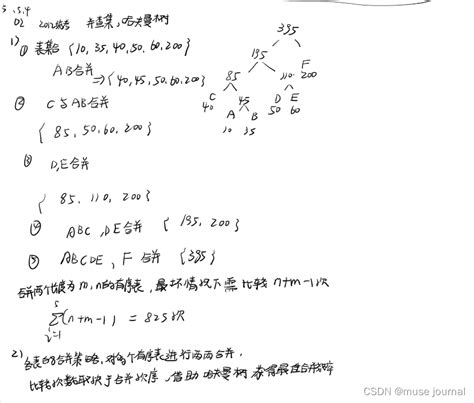 5.5.4
02 2012统考 并查集,哈夫曼树
1) ① 表集合 {10, 35, 40, 50, 60, 200}
AB合并
⇒ {40, 45, 50, 60, 200}
② C与AB合并
{ 85, 50, 60, 200 }
③ D,E合并
{ 85, 110, 200 }
④ ABC, DE合并 { 195, 200 }
⑤ ABCDE, F 合并 {395}
395
195
F
200
85
110
C
40
45
D
50
E
60
A
10
B
35
合并两个长度为m,n的有序表,最坏情况下需比较 n+m-1次
5
∑(n+m-1) = 825次
i=1
2) 各表的合并策略,对多个有序表进行两两合并,
比较次数取决于合并次序,借助哈夫曼树
CSDN @muse journal